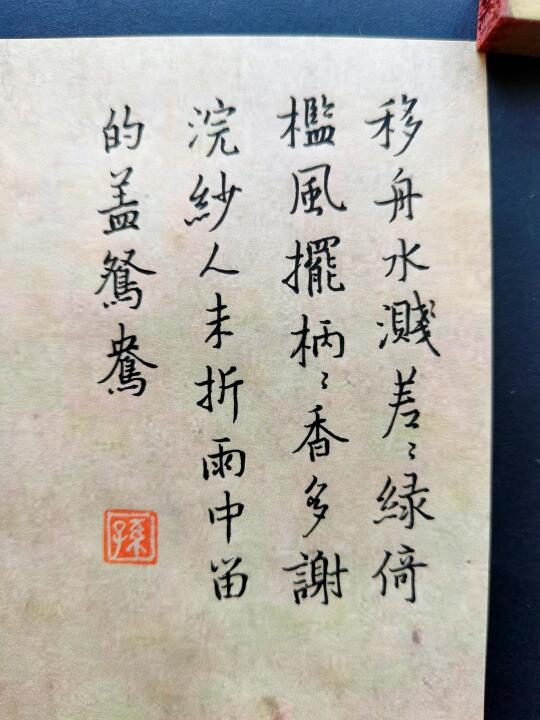 移舟水濺差〻綠倚
檻風擺柄〻香多謝
浣紗人未折雨中留
的盖鴛鴦
孫